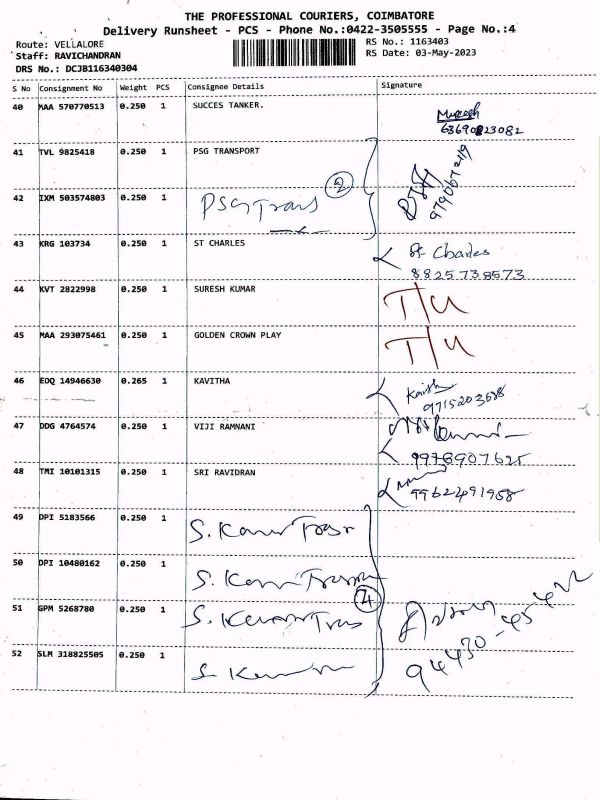 THE PROFESSIONAL COURIERS, COIMBATORE
Delivery Runsheet - PCS - Phone No.:0422-3505555 - Page No.:4
Route: VELLALORE
RS No.: 1163403
Staff: RAVICHANDRAN
RS Date: 03-May-2023
DRS No.: DCJB116340304
S No Consignment No Weight PCS Consignee Details Signature
40 MAA 570770513 0.250 1 SUCCES TANKER.
41 TVL 9825418 0.250 1 PSG TRANSPORT
42 IXM 503574803 0.250 1 PSG Trans 2
43 KRG 103734 0.250 1 ST CHARLES St Charles
8825738573
44 KVT 2822998 0.250 1 SURESH KUMAR T/U
45 MAA 293075461 0.250 1 GOLDEN CROWN PLAY T/U
46 EDQ 14946630 0.265 1 KAVITHA
47 DDG 4764574 0.250 1 VIJI RAMNANI
9978907625
48 TMI 10101315 0.250 1 SRI RAVIDRAN
49 DPI 5183566 0.250 1
50 DPI 10480162 0.250 1
51 GPM 5268780 0.250 1
52 SLM 318825505 0.250 1
94430-45422